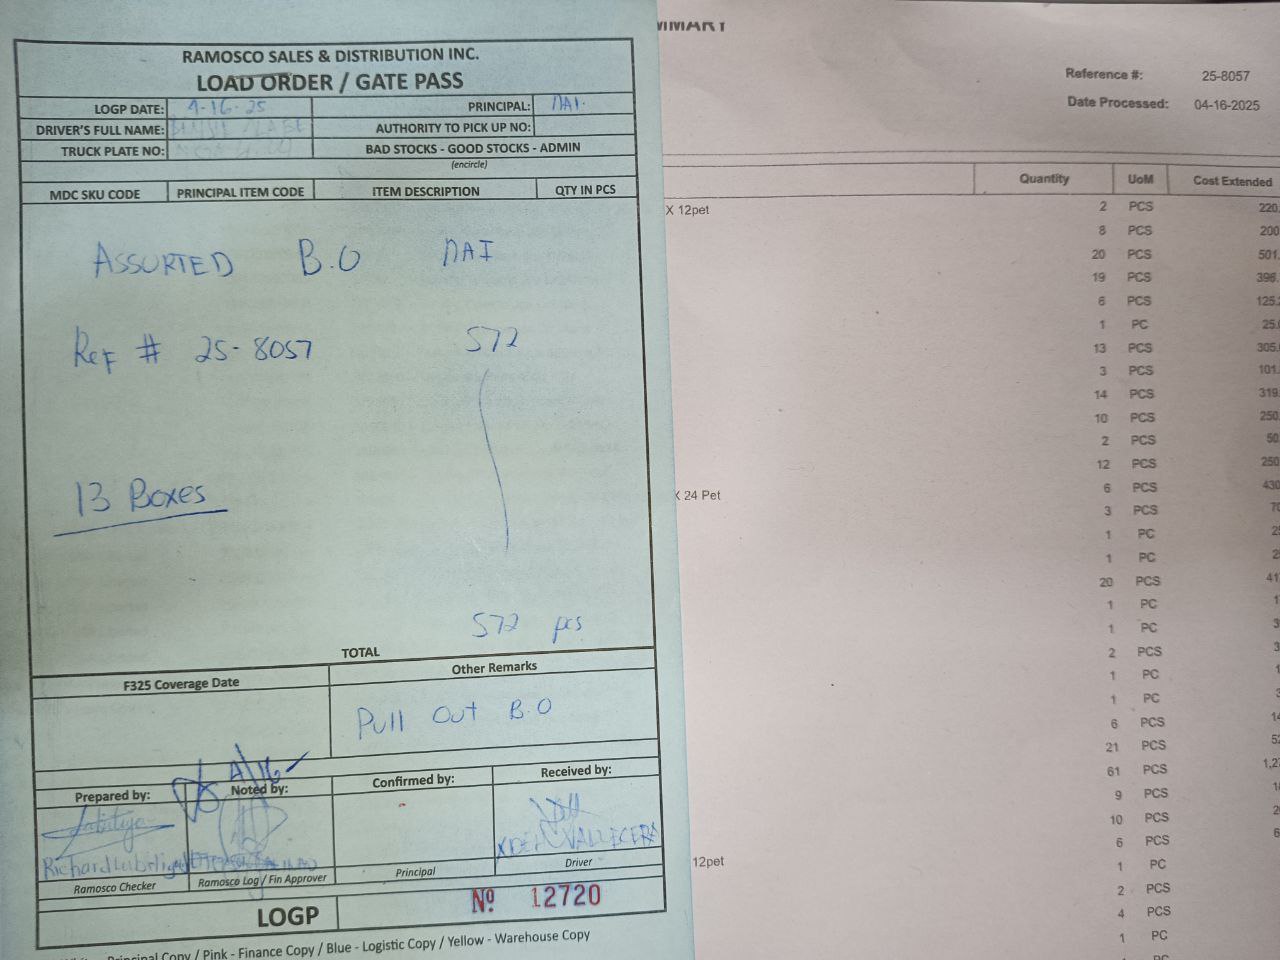 RAMOSCO SALES & DISTRIBUTION INC.
LOAD ORDER / GATE PASS
LOGP DATE: 4-16-25 PRINCIPAL: NAI.
DRIVER'S FULL NAME: AUTHORITY TO PICK UP NO:
TRUCK PLATE NO: BAD STOCKS - GOOD STOCKS - ADMIN
(encircle)
MDC SKU CODE PRINCIPAL ITEM CODE ITEM DESCRIPTION QTY IN PCS
ASSORTED B.O NAI
Ref # 25-8057 572
13 Boxes
572 pcs
TOTAL
F325 Coverage Date Other Remarks
Pull Out B.O
Prepared by: Noted by: Confirmed by: Received by:
VALLECERA
Ramosco Checker Ramosco Log / Fin Approver Principal Driver
LOGP Nº 12720
Principal Copy / Pink - Finance Copy / Blue - Logistic Copy / Yellow - Warehouse Copy
Reference #: 25-8057
Date Processed: 04-16-2025
Quantity UoM Cost Extended
X 12pet 2 PCS 220.
8 PCS 200
20 PCS 501.
19 PCS 396.
6 PCS 125.
1 PC 25.
13 PCS 305.
3 PCS 101.
14 PCS 319.
10 PCS 250.
2 PCS 50.
12 PCS 250
X 24 Pet 6 PCS 430
3 PCS
1 PC
1 PC
20 PCS
1 PC
1 PC
2 PCS
1 PC
1 PC
6 PCS
21 PCS
61 PCS
9 PCS
10 PCS
6 PCS
12pet 1 PC
2 PCS
4 PCS
1 PC